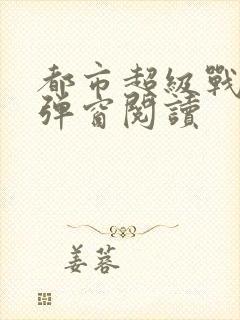 都市超級戰
彈窗閱讀
姜蓉